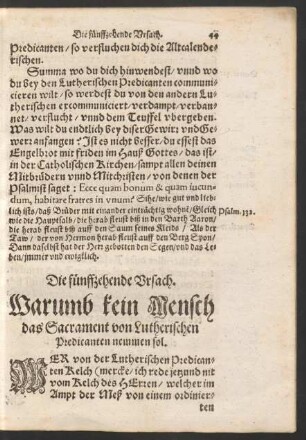 Die fünffzehende Vrsach.
Predicanten / so verfluchen dich die Altcalende-
rischen.
Summa wo du dich hinwendest / vnnd wo
du bey den Lutherischen Predicanten communi-
cieren wilt / so werdest du von den andern Lu-
therischen excommuniciert / verdampt / verban-
net / verflucht / vnnd dem Teuffel vbergeben.
Was wilt du endtlich bey diser Gewir: vnd Ge-
werr anfangen? Ist es nicht besser / du essest das
Engelbrot mit friden im Hauß Gottes / das ist /
in der Catholischen Kirchen / sampt allen deinen
Mitbrüdern vnnd Mitchristen / von denen der
Psalmist saget: Ecce quam bonum & quam iucun-
dum, habitare fratres in vnum? Sihe / wie gut und lieb-
lich ists / daß Brüder mit einander einträchtig wohnē / Gleich
wie die Hauptsalb / die herab fleust biß in den Barth Aaron /
die herab fleust biß auff den Saum seines Kleids / Als der
Taw / der von Hermon herab fleust auff den Berg Sion /
Dann daselbst hat der Herr gebotten den Segen / und das Le-
ben / jmmer und ewigklich.
Psalm. 132.
Die fünffzehende Vrsach.
Warumb kein Mensch
das Sacrament von Lutherischen
Predicanten nemmen sol.
WER von der Lutherischen Predican-
ten Kelch (mercke / ich rede jetzund nit
vom Kelch des HErren / welcher im
Ampt der Meß von einem ordinier-
ten